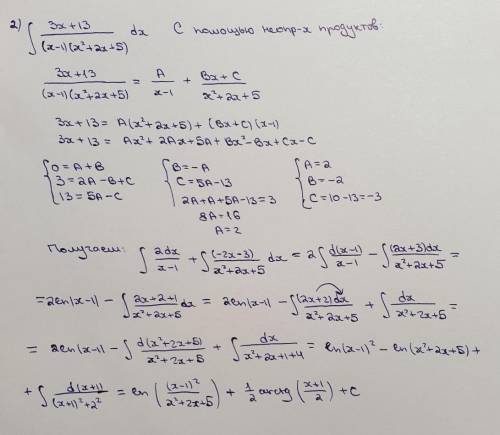 2) ∫ (3x+13)/((x-1)(x²+2x+5)) dx С помощью неопр-х продуктов:
(3x+13)/((x-1)(x²+2x+5)) = A/(x-1) + (Bx+C)/(x²+2x+5)
3x+13 = A(x²+2x+5) + (Bx+C)(x-1)
3x+13 = Ax²+2Ax+5A+Bx²-Bx+Cx-C
{0=A+B {B=-A {A=2
{3=2A-B+C {C=5A-13 {B=-2
{13=5A-C 2A+A+5A-13=3 {C=10-13=-3
8A=16
A=2
Получаем: ∫ 2dx/(x-1) + ∫ (-2x-3)/(x²+2x+5) dx = 2∫ d(x-1)/(x-1) - ∫ (2x+3)dx/(x²+2x+5) =
= 2ln|x-1| - ∫ (2x+2+1)/(x²+2x+5) dx = 2ln|x-1| - ∫ (2x+2)dx/(x²+2x+5) + ∫ dx/(x²+2x+5) =
= 2ln|x-1| - ∫ d(x²+2x+5)/(x²+2x+5) + ∫ dx/(x²+2x+1+4) = ln(x-1)² - ln(x²+2x+5) +
+ ∫ d(x+1)/((x+1)²+2²) = ln((x-1)²/(2²+2x+5)) + 1/2 arctg((x+1)/2) + C